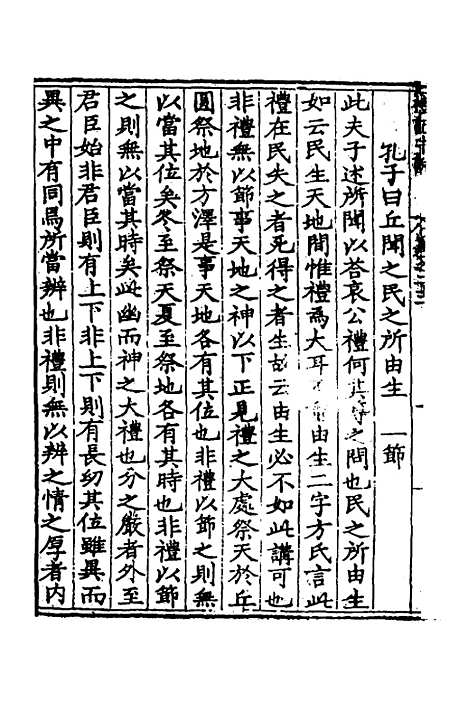 孔子曰丘聞之民之所由生　一節
此夫子述所聞以荅哀公禮何其尊之問也民之所由生
如云民生天地間惟禮爲大耳由生二字方氏言此
禮在民失之者死得之者生故云由生必不如此講可也
非禮無以節事天地之神以下正見禮之大處祭天於丘
圓祭地於方澤是事天地各有其位也非禮以節之則無
以當其位矣冬至祭天夏至祭地各有其時也非禮以節
之則無以當其時矣此幽而神之大禮也分之嚴者外至
君臣始非君臣則有上下非上下則有長幼其位雖異而
異之中有同焉所當辨也非禮則無以辨之情之厚者内